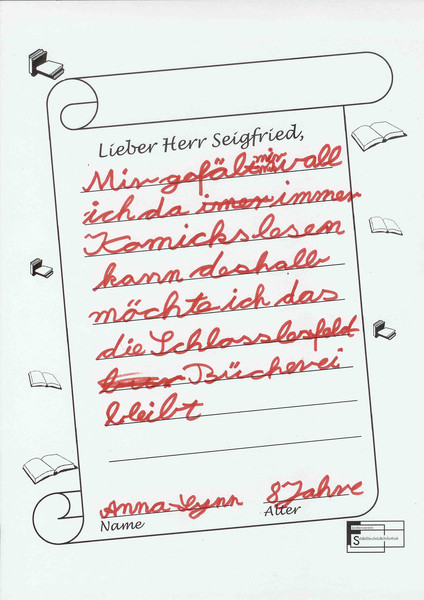 Lieber Herr Seigfried,
Mir gefält mir wall
ich da imer immer
Komicks lesen
kann deshalb
möchte ich das
die Schlosslesfeld
Bücherei
bleibt
Anna-Lynn 8 Jahre
Name Alter